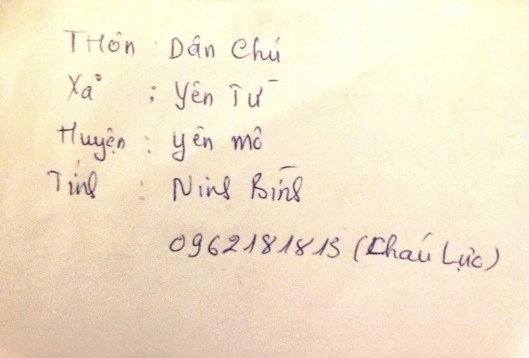 Thôn : Dân Chủ
Xã : Yên Từ
Huyện : Yên mô
Tỉnh : Ninh Bình
0962181813 (Cháu Lực)